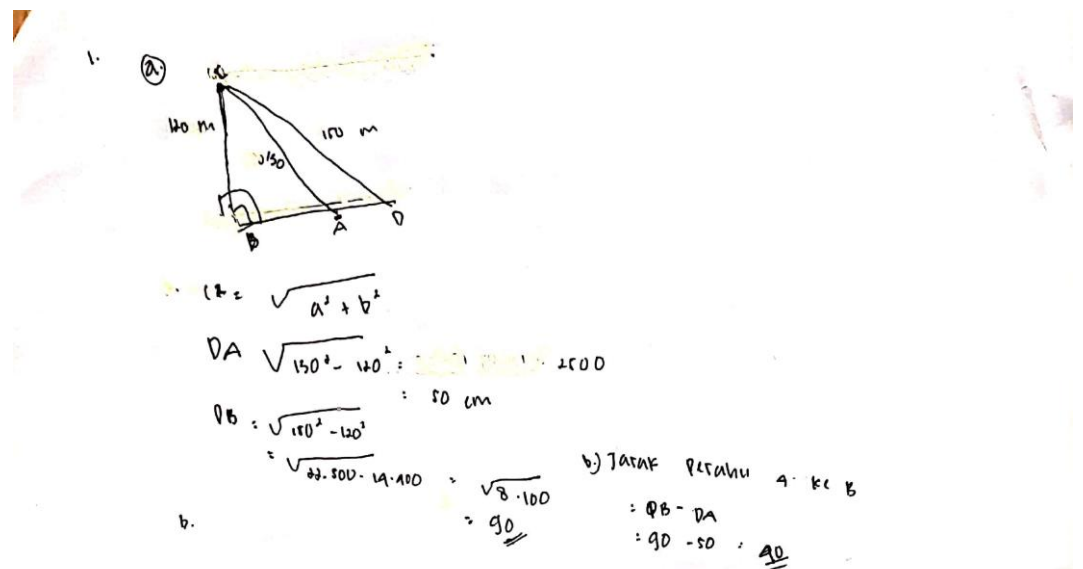 1.
a.
120 m
150 m
130
B
A
D
c² = √a² + b²
DA √130² - 120² = 2500
= 50 cm
DB = √150² - 120²
= √22.500 - 14.400 = √8.100
= 90
b.
b.) Jarak perahu A ke B
= DB - DA
= 90 - 50 = 40